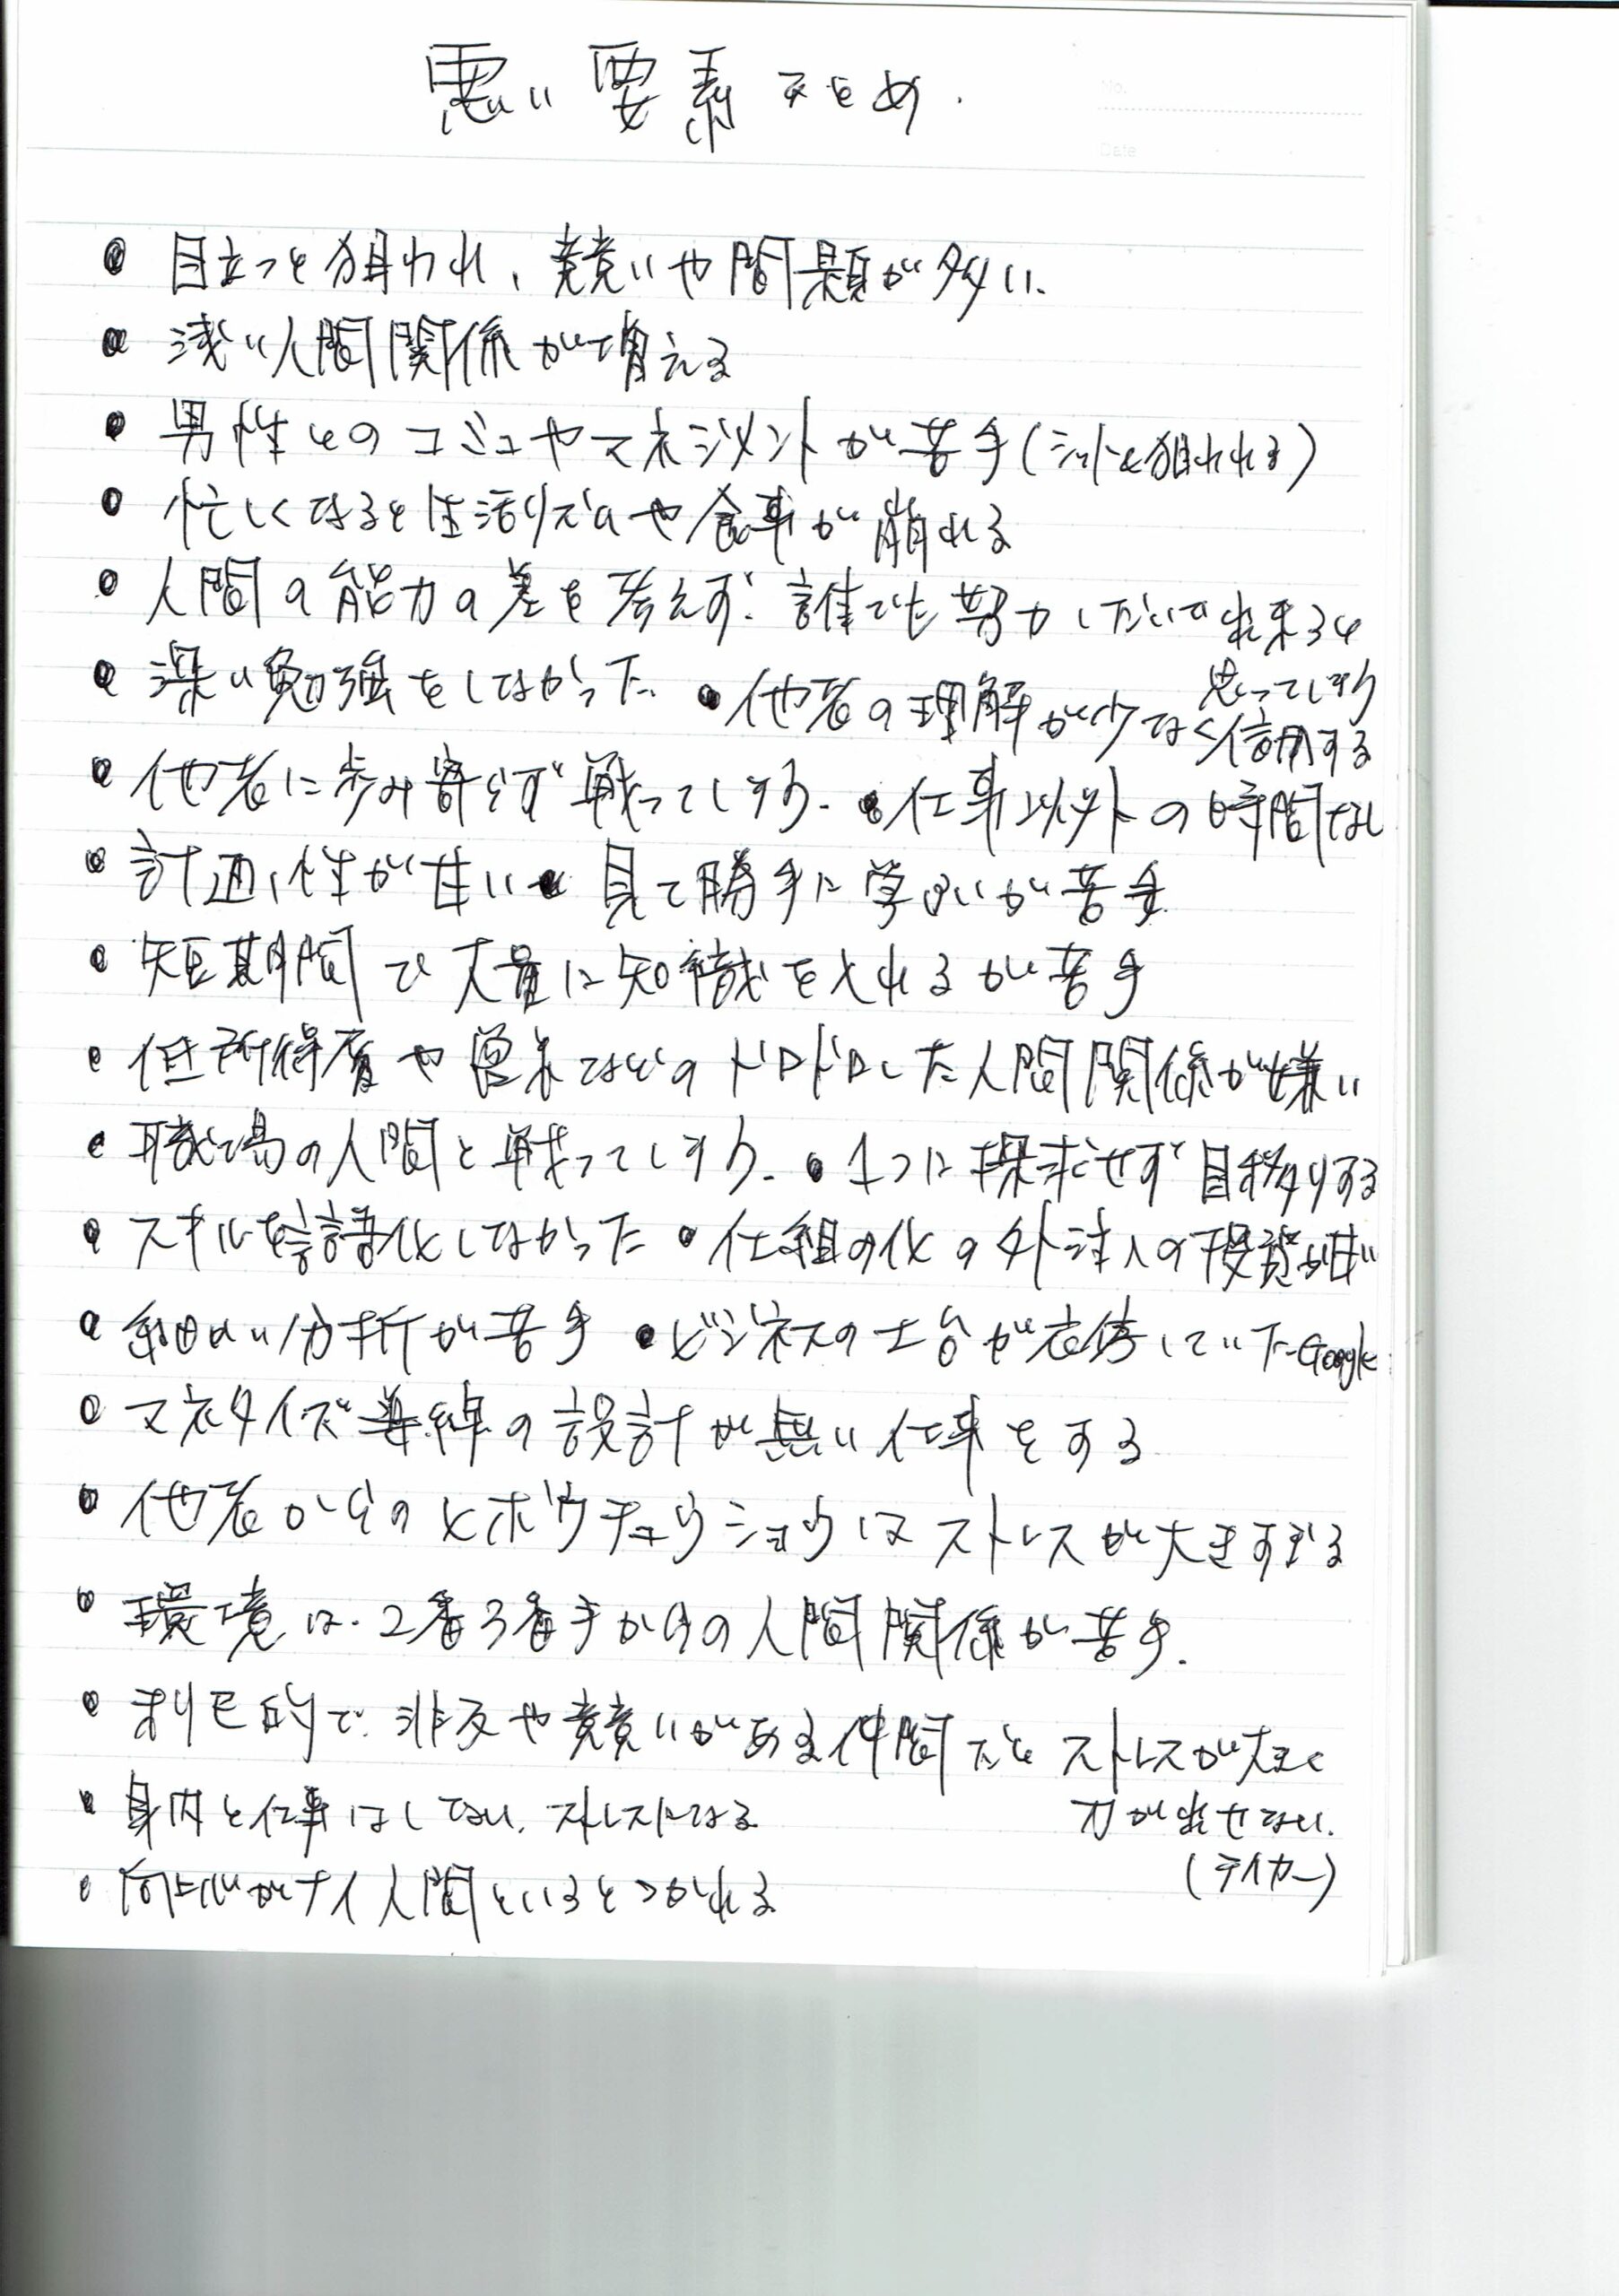 悪い要素まとめ.
No.
Date
• 目立つと狙われ、競いや問題が多い.
• 浅い人間関係が増える
• 男性とのコミュやマネジメントが苦手(シットと狙われる)
• 忙しくなると生活リズムや食事が崩れる
• 人間の能力の差を考えず. 誰でも努力しだいで出来ると
思ってしまう
• 深い勉強をしなかった. • 他者の理解が少なく信用する
• 他者に歩み寄らず戦ってしまう. • 仕事以外の時間なし
• 計画性が甘い • 見て勝手に学ぶが苦手
• 短期間で大量に知識を入れるが苦手
• 低所得層や などのドロドロした人間関係が嫌い
• 職場の人間と戦ってしまう. • 1つに探求せず目移りする
• スキルを言語化しなかった • 仕組み化の外注への投資が甘い
• 細かい分析が苦手 • ビジネスの土台が依存していた-Google
• マネタイズ導線の設計が無い仕事をする
• 他者からのヒボウチュウショウはストレスが大きすぎる
• 環境は. 2番3番手からの人間関係が苦手.
• 利己的で. 非友や競いがある仲間だとストレスが大きく
力が出せない.
(テイカー)
• 身内と仕事はしてない. ストレスになる
• 向上心がナイ人間といるとつかれる